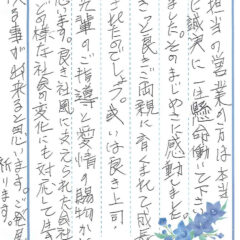 担当の営業の方は本当
に誠実に一生懸命働いて下さ
ました。そのまじめさに感動しました
きっと良きご両親に育くまれて成長
されたのでしょう。或いは良き上司、
先輩のご指導と愛情の賜物か
思います。良き社風に支えられた会社
どの様な社員の変化にも対応して
する事が出来ると思います。ご発展
祈ります。